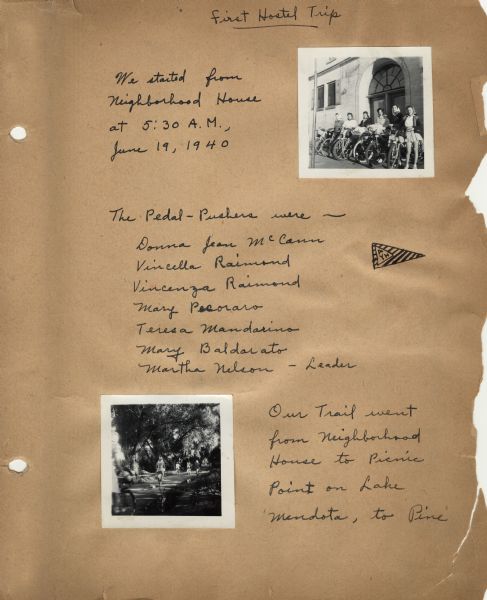 First Hostel Trip
We started from
Neighborhood House
at 5:30 A.M.,
June 19, 1940
The Pedal-Pushers were —
Donna Jean McCann
Vincella Raimond
Vincenza Raimond
Mary Pecoraro
Teresa Mandarino
Mary Baldarato
Martha Nelson - Leader
AYH
Our Trail went
from Neighborhood
House to Picnic
Point on Lake
Mendota, to Pine